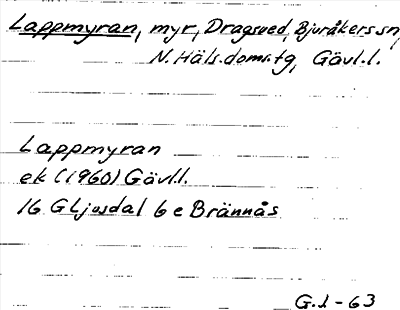 Lappmyran, myr, Dragsved, Bjuråkers sn,
N. Häls. doms.tg, Gävl.l.
Lappmyran
ek (1960) Gävl.l.
16 G Ljusdal 6 e Brännås
G.l - 63